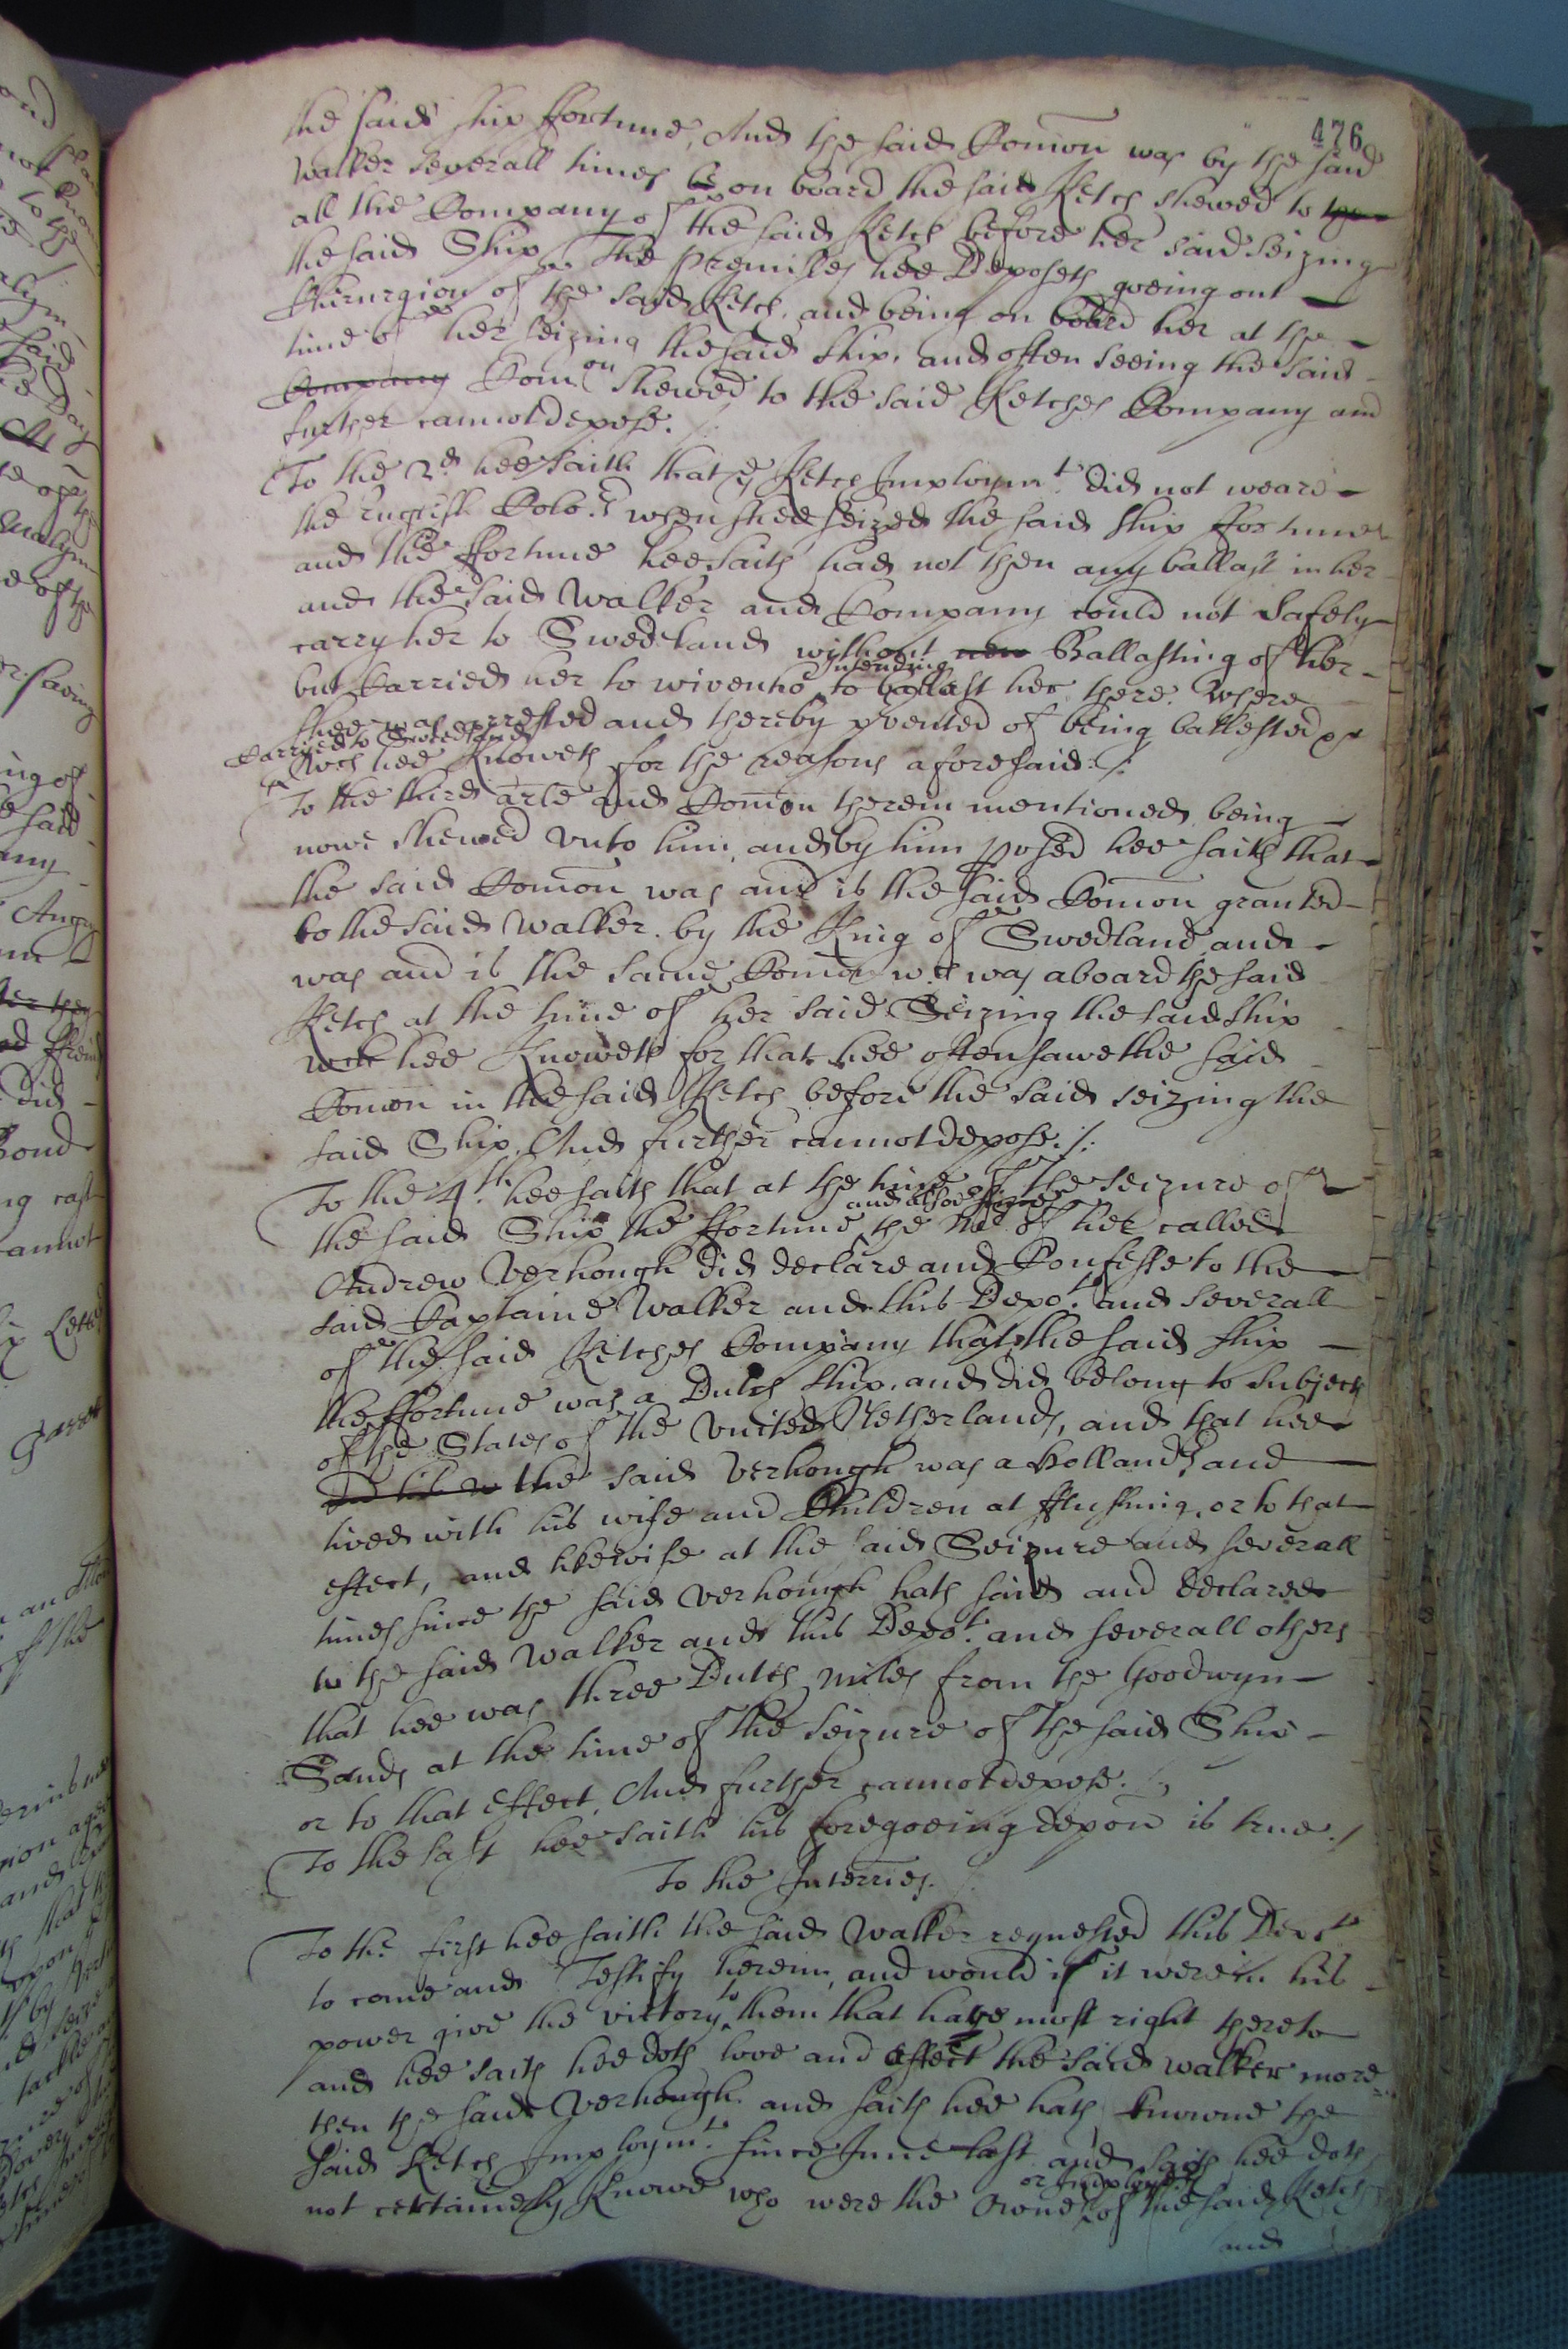 476
the said ship ffortune, And the said Comion was by the said
Walker severall times on board the said Ketch shewed to
all the Company of the said Ketch before her said seizing
the said Ship. The premisses hee Deposeth goeing out
Chirurgion of the said Ketch, and being on board her at the
time of her seizing the said ship, and often seeing the said
Company Comion shewed to the said Ketches Company and
further cannot depose./.
To the 2d hee saith that ye Ketch Imploymt did not weare
the English Colo:rs when shee seized the said ship ffortune
and the ffortune hee saith had not then any ballast in her
and the said Walker and Company could not safely
carry her to Swedland without new Ballasting of her
but Carried her to wivenho intending to ballast her there. Where
shee was arrested and thereby pvented of being ballested or
Carried to Swedland
wch hee knoweth for the reasons aforesaid:/.
To the third arle and Comion therein mentioned being
nowe shewed vnto him, and by him pused hee saith that
the said Comion was and is the said Comion granted
to the said Walker by the King of Swedland and
was and is the same Comion wch was aboard the said
Ketch at the time of her said Seizing the said ship
wch hee knoweth for that hee often sawe the said
Comion in the said Ketch before the said seizing the
said Ship, And further cannot depose./.
To the 4th. hee saith that at the time of the seizure of
the said Ship the ffortune and allsoe since the Mr of her called
Andrew Verhough did declare and Confesse to the
said Captaine Walker and this Depot. and severall
of the said Ketches Company that the said ship
the ffortune was a Dutch ship, and did belong to subjects
of the States of the Vnited Netherlands, and that hee
the said Verhough was a Hollandr and
lived with his wife and Children at fflushing, or to that
effect, and likewise at the said Seizure and severall
times since the said Verhough hath said and declared
to the said Walker and this Depot. and severall others
that hee was three Dutch miles from the Goodwyn
Sands at the time of the seizure of the said Ship
or to that effect, And further cannot depose.
To the last hee saith his foregoeing depon is true./
To the Interries.
To the first hee saith the said Walker requested this Depot
to come and Testify herein, and would if it were in his
power give the victory to them that have most right thereto
and hee saith hee doth love and affect the said walker more
then the said Verhough and saith hee hath knowne the
said Ketch Imploymt. since June last and saith hee doth
not certainely knowe who were the Owners or Imployers of the said Ketch
and